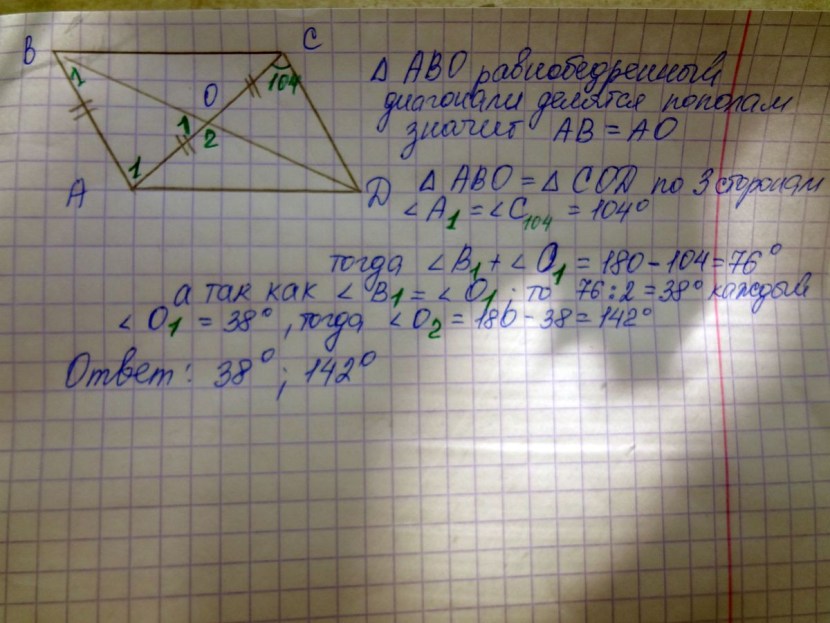 B
C
1
O
104
1
2
1
A
D
Δ ABO равнобедренный
диагонали делятся пополам
значит AB = AO
Δ ABO = Δ COD по 3 сторонам
∠A₁ = ∠C₁₀₄ = 104°
тогда ∠B₁ + ∠O₁ = 180 - 104 = 76°
а так как ∠B₁ = ∠O₁, то 76:2 = 38° каждый
∠O₁ = 38°, тогда ∠O₂ = 180 - 38 = 142°
Ответ: 38°; 142°